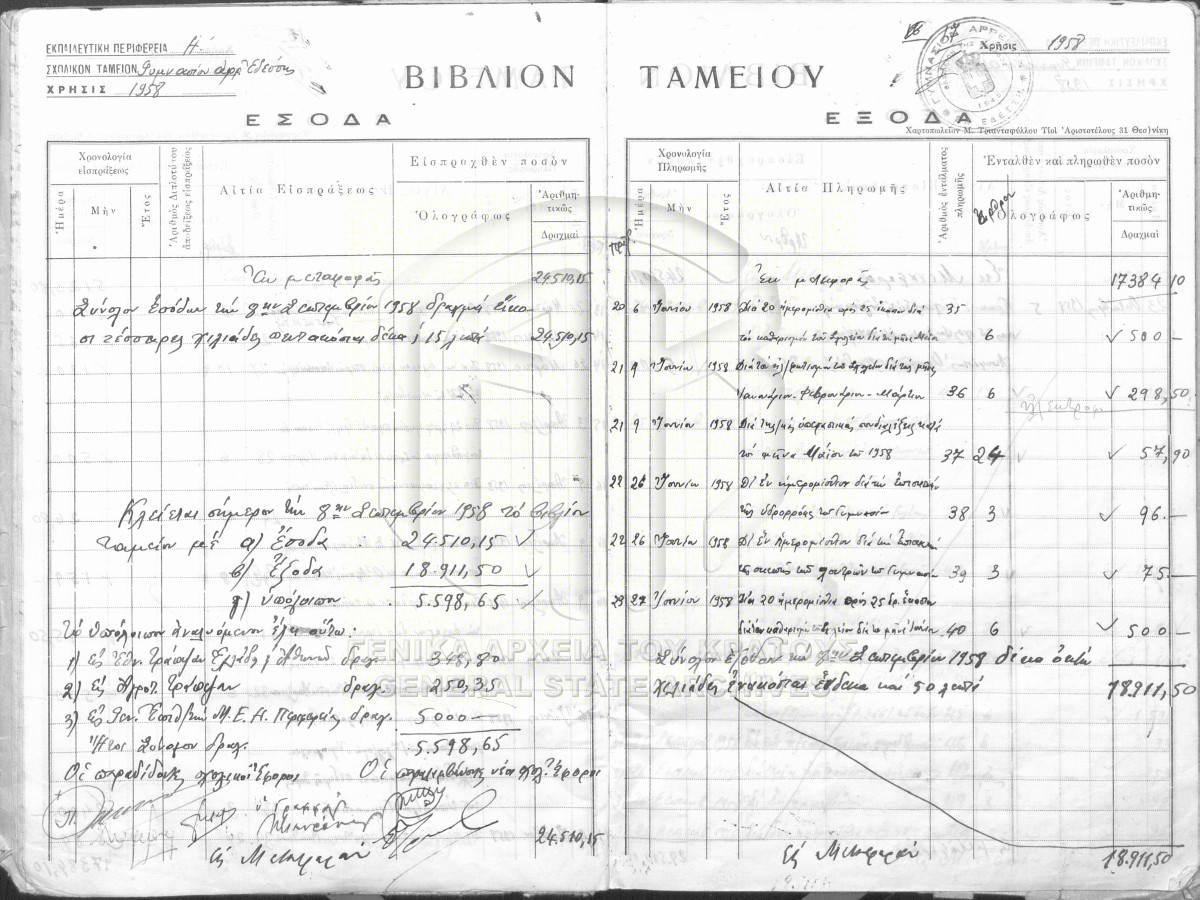 ΕΚΠΑΙΔΕΥΤΙΚΗ ΠΕΡΙΦΕΡΕΙΑ Η'
ΣΧΟΛΙΚΟΝ ΤΑΜΕΙΟΝ Γυμνασίου αρρ. Εδέσσης
ΧΡΗΣΙΣ 1958
ΒΙΒΛΙΟΝ
ΕΣΟΔΑ
Χρονολογία εἰσπράξεως
Ἡμέρα
Μὴν
Ἔτος
Ἀριθμὸς Διπλοτύπου ἀποδείξεως εἰσπράξεως
Αἰτία Εἰσπράξεως
Εἰσπραχθὲν ποσὸν
Ὁλογράφως
Ἀριθμητικῶς
Δραχμαὶ
Ἐκ μεταφορᾶς 24.510,15
Σύνολον Ἐσόδων τὴν 8ην Σεπτεμβρίου 1958 δραχμαί εἴκο
σι τέσσαρες χιλιάδες πεντακόσιαι δέκα & 15 λεπτά 24.510,15
Κλείεται σήμερον τὴν 8ην Σεπτεμβρίου 1958 τὸ βιβλίον
ταμείου μὲ α) Ἔσοδα 24.510,15
β) Ἔξοδα 18.911,50
γ) ὑπόλοιπον 5.598,65
Τὸ ὑπόλοιπον ἀναλυόμενον ἔχει οὕτω:
1) εἰς Ἐθν. Τράπεζαν Ἑλλάδος & Ἀθηνῶν δραχ. 348,80
2) εἰς Ἀγροτ. Τράπεζαν δραχ. 250,35
3) εἰς Γεν. Ἐπιθ/τὴν Μ.Ε. Η Περιφερείας δραχ. 5000-
Ἤτοι Σύνολον δραχ. 5.598,65
Οἱ παραδίδοντες σχολικοί Ἔφοροι
Οἱ παραλαμβάνοντες νέοι σχολ. Ἔφοροι
24.510,15
Εἰς Μεταφορὰν
ΤΑΜΕΙΟΥ
67
Χρῆσις 1958
ΓΥΜΝΑΣΙΟΝ ΑΡΡΕΝΩΝ ΕΔΕΣΣΗΣ
ΕΞΟΔΑ
Χαρτοπωλεῖον Μ. Τριανταφύλλου Τῖοὶ Ἀριστοτέλους 31 Θεσ)νίκη
Χρονολογία Πληρωμῆς
Ἡμέρα
Μὴν
Ἔτος
Αἰτία Πληρωμῆς
Ἀριθμὸς ἐντάλματος πληρωμῆς
Ἐνταλθὲν καὶ πληρωθὲν ποσὸν
Ἄρθρον
Ὁλογράφως
Ἀριθμητικῶς
Δραχμαὶ
Πράξ.
Ἐκ μεταφορᾶς 17384 10
20 6 Ἰουνίου 1958 Διὰ 20 ἡμερομίσθια πρὸς 25 ἕκαστον διὰ 35
τὸν καθαρισμὸν τοῦ Σχολείου διὰ τὸν μῆνα Μάϊον 6 500 –
21 9 Ἰουνίου 1958 Διὰ τὸν ἠλ/φωτισμὸν τοῦ Σχολείου διὰ τοὺς μῆνας
Ἰανουάριον - Φεβρουάριον - Μάρτιον 36 6 298,50
21 9 Ἰουνίου 1958 Διὰ τηλ/κὰς ὑπεραστικὰς συνδιαλέξεις κατὰ
τὸν μῆνα Μάϊον τοῦ 1958 37 24 57,90
22 26 Ἰουνίου 1958 Δι' ἓν ἡμερομίσθιον διὰ τὴν ἐπισκευὴν
τῆς ὑδρορρόης τοῦ Γυμνασίου 38 3 96.–
22 26 Ἰουνίου 1958 Δι' ἓν ἡμερομίσθιον διὰ τὴν ἐπισκευὴν
τῆς σκεπῆς τῶν λουτρῶν τοῦ Γυμνασίου 39 3 75 –
23 27 Ἰουνίου 1958 Διὰ 20 ἡμερομίσθια πρὸς 25 δρ. ἕκαστον
διὰ τὸν καθαρισμὸν τοῦ Σχολείου διὰ τὸν μῆνα Ἰούνιον 40 6 500 –
Σύνολον ἐξόδων τὴν 8ην Σεπτεμβρίου 1958 δέκα ὀκτὼ
χιλιάδες ἐνακόσιαι ἕνδεκα καὶ 50 λεπτά 18911,50
Εἰς Μεταφορὰν 18.911,50
ΓΕΝΙΚΑ ΑΡΧΕΙΑ ΤΟΥ ΚΡΑΤΟΥΣ
GENERAL STATE ARCHIVES